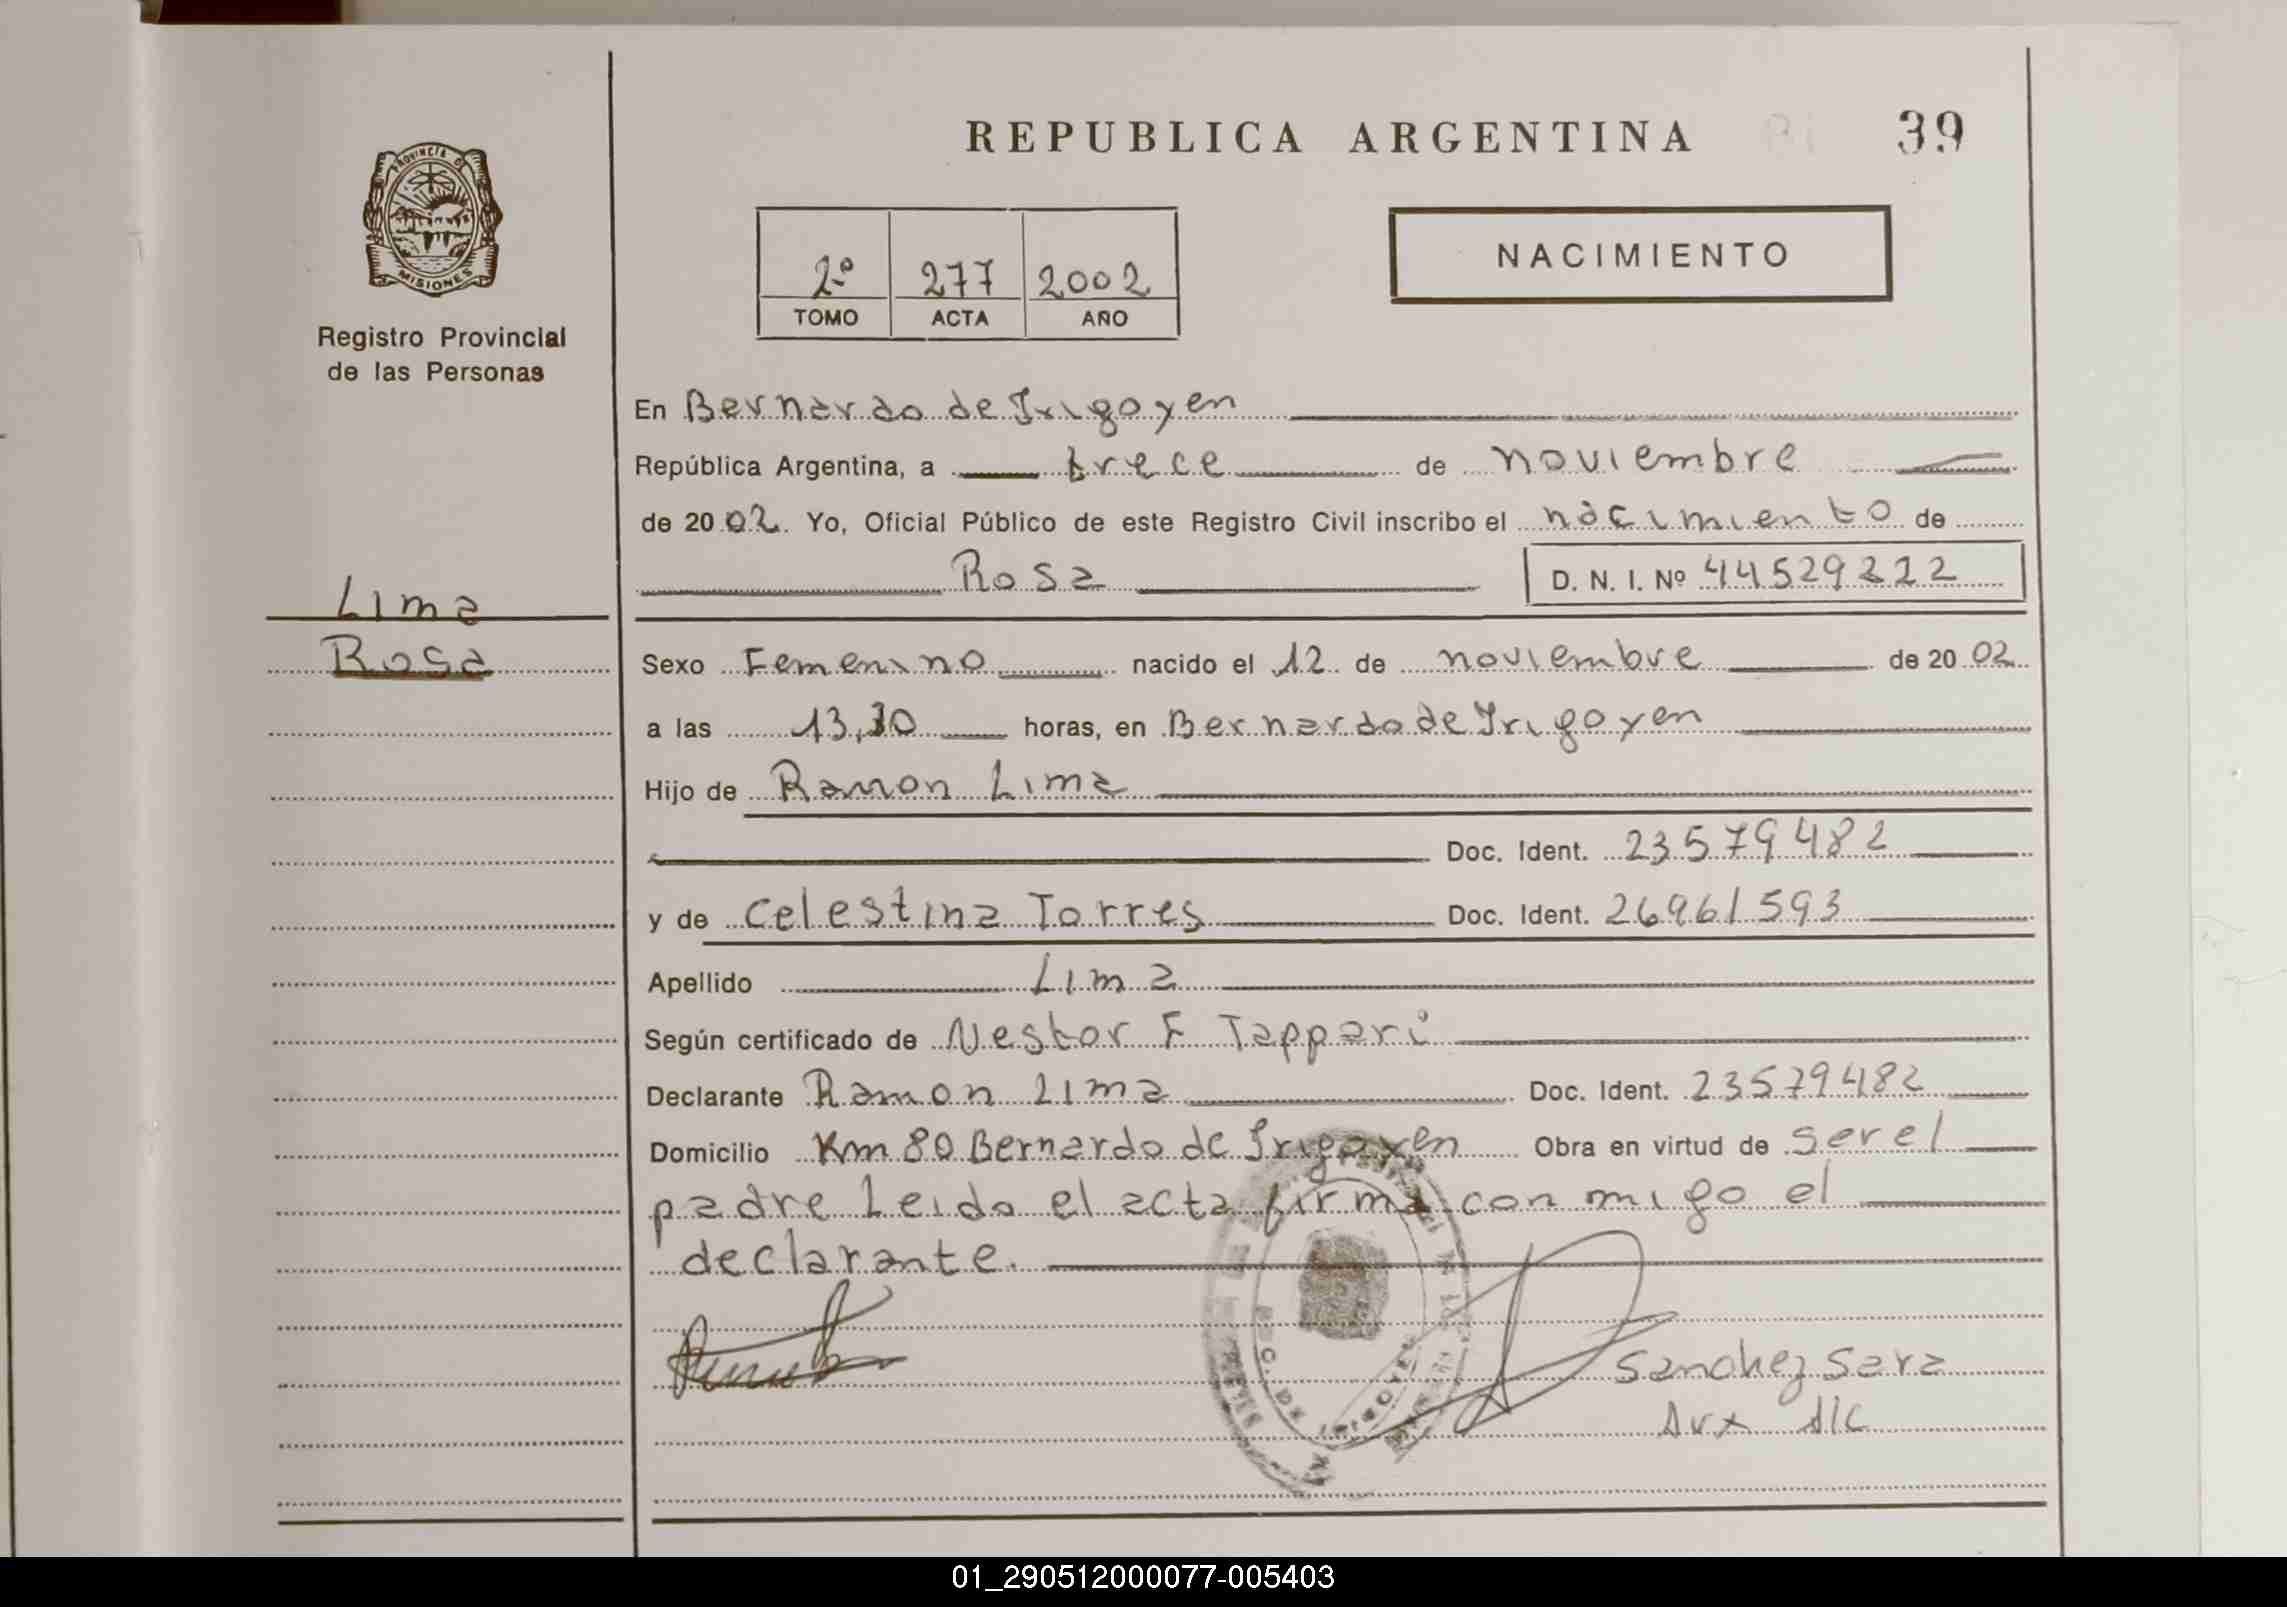 REPUBLICA ARGENTINA 39
PROVINCIA DE
MISIONES
Registro Provincial
de las Personas
2º 277 2002
TOMO ACTA AÑO
NACIMIENTO
En Bernardo de Irigoyen
República Argentina, a trece de noviembre
de 2002. Yo, Oficial Público de este Registro Civil inscribo el nacimiento de
Rosa D. N. I. Nº 44529222
Lima
Rosa
Sexo Femenino nacido el 12 de noviembre de 2002
a las 13,30 horas, en Bernardo de Irigoyen
Hijo de Ramon Lima
Doc. Ident. 23579482
y de Celestina Torres Doc. Ident. 26961593
Apellido Lima
Según certificado de Nestor F Tappari
Declarante Ramon Lima Doc. Ident. 23579482
Domicilio Km 80 Bernardo de Irigoyen Obra en virtud de ser el
padre Leido el acta firma con migo el
declarante.
Sanchez Sara
Aux A/C
01_290512000077-005403